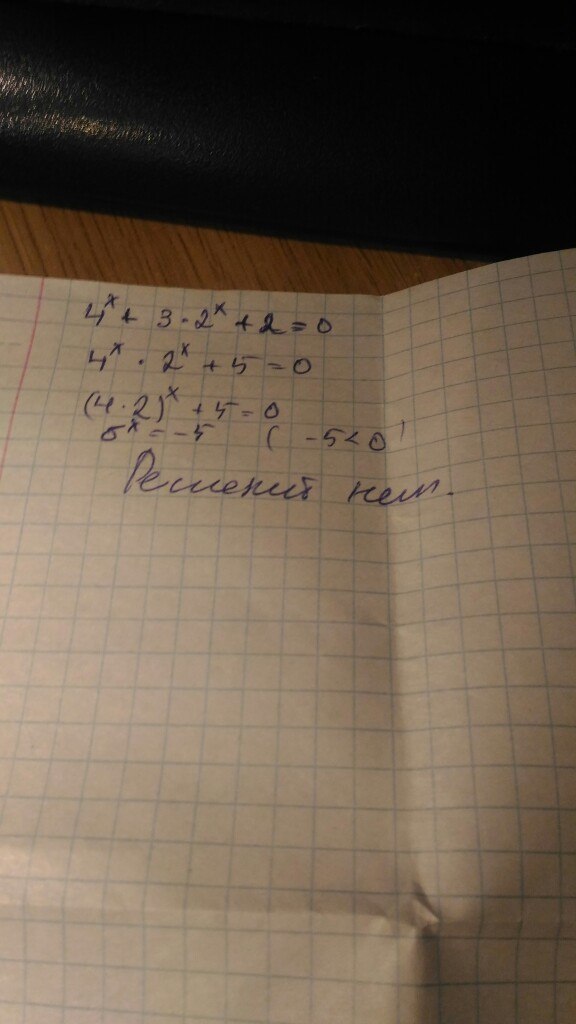 4^x + 3 · 2^x + 2 = 0
4^x · 2^x + 5 = 0
(4 · 2)^x + 5 = 0
6^x = -5 ( -5 < 0 )
Решений нет.